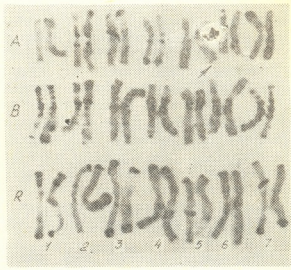 A
B
R
1 2 3 4 5 6 7